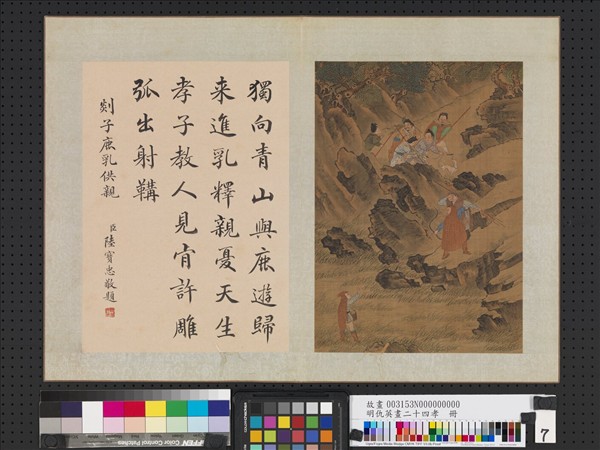 獨向青山與鹿遊歸
来進乳釋親憂天生
孝子教人見肯許雕
弧出射韝
剡子鹿乳供親
臣陸寶忠敬題
故畫 003153N000000000
明仇英畫二十四孝 冊
7